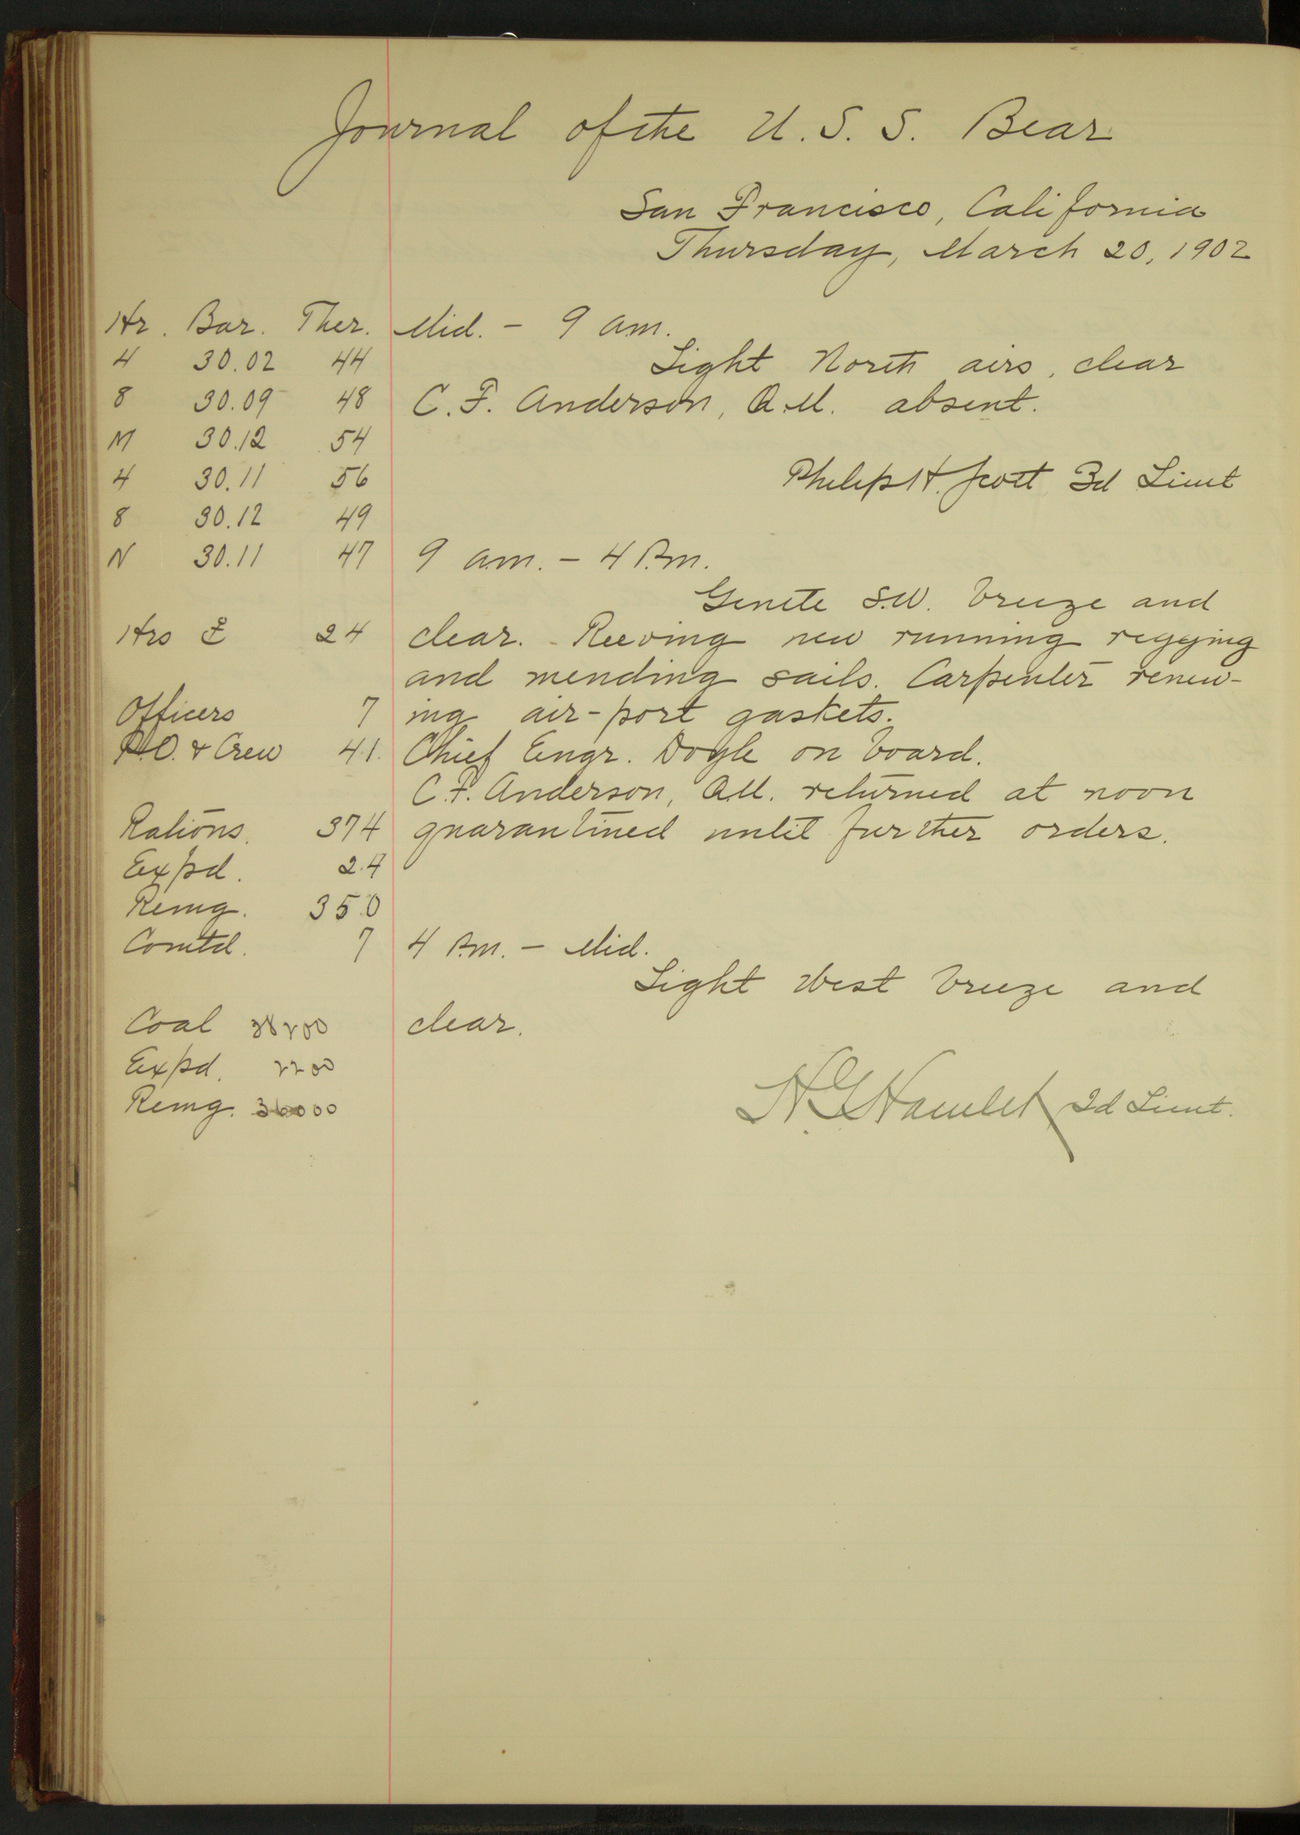 Journal of the U. S. S. Bear
San Francisco, California
Thursday, March 20, 1902
Hr. Bar. Ther.
4 30.02 44
8 30.09 48
M 30.12 54
4 30.11 56
8 30.12 49
N 30.11 47
Hrs 24
Officers 7
P.O. & Crew 41.
Rations. 374
Expd. 24
Remg. 350
Comtd. 7
Coal 38200
Expd. 2200
Remg. 36000
Mid. - 9 a.m.
Light North airs, clear
C. F. Anderson, Q.M. absent.
Philip H. Scott 3d Lieut
9 a.m. - 4 P.m.
Gentle S.W. breeze and
clear. - Reeving new running rigging
and mending sails. Carpenter renew-
ing air-port gaskets.
Chief Engr. Doyle on board.
C. F. Anderson, Q.M. returned at noon
quarantined until further orders.
4 P.m. - Mid.
Light West breeze and
clear.
H G Hamlet 2d Lieut.